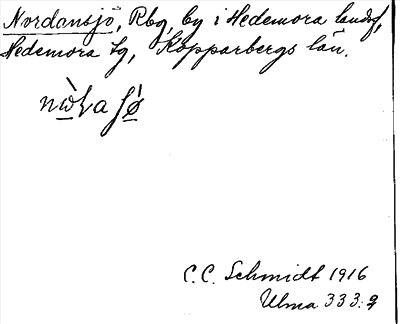 Nordansjö, Rbg, by i Hedemora landsf,
Hedemora tg, Kopparbergs län.
C.C. Schmidt 1916
Ulma 333:9